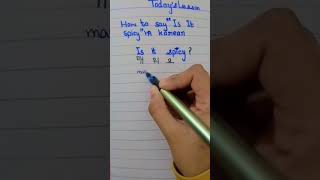 Today's Lesson
How to say "Is It
spicy" in korean
Is it spicy?